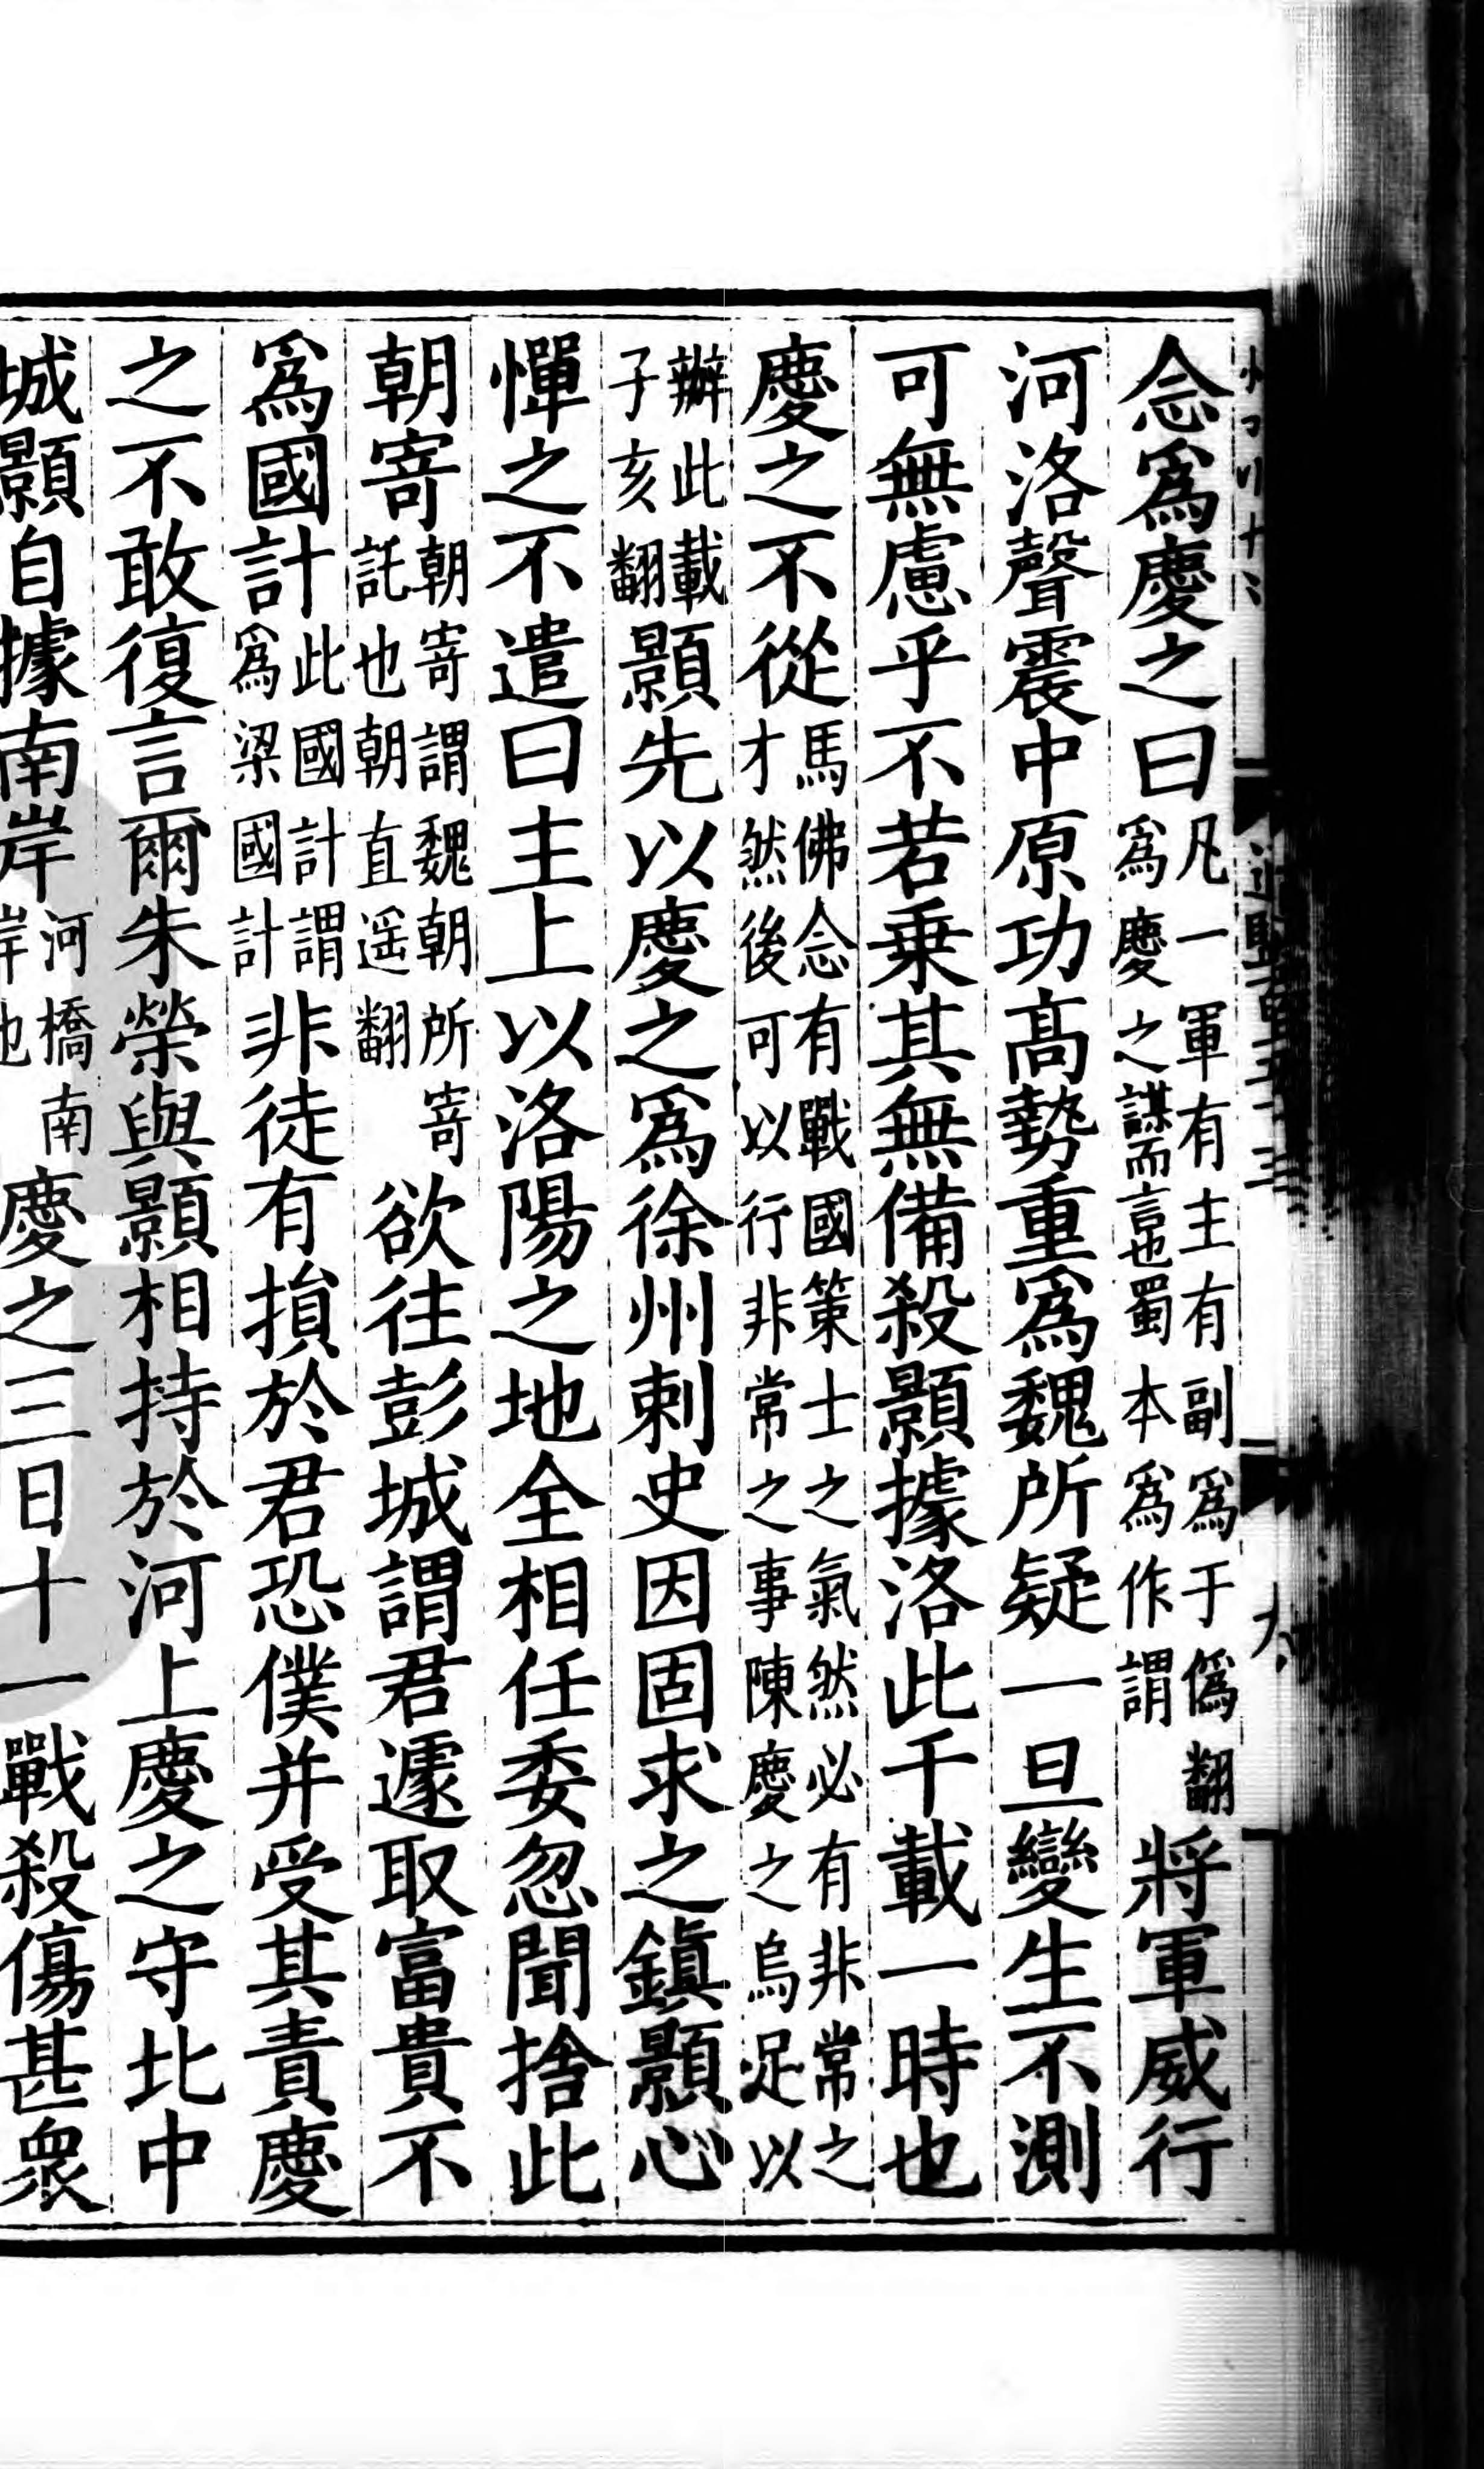 念爲慶之曰凡一軍有主有副爲于僞翻爲慶之謀而言也蜀本爲作謂將軍威行
河洛聲震中原功高勢重爲魏所疑一旦變生不測
可無慮乎不若乗其無備殺顥據洛此千載一時也
慶之不從馬佛念有戰國策士之氣然必有非常之才然後可以行非常之事陳慶之烏足以
辦此載子亥翻顥先以慶之爲徐州刺史因固求之鎭顥心
憚之不遣曰主上以洛陽之地全相任委忽聞捨此
朝寄朝寄謂魏朝所寄託也朝直遥翻欲往彭城謂君遽取富貴不
爲國計此國計謂爲梁國計非徒有損於君恐僕并受其責慶
之不敢復言爾朱榮與顥相持於河上慶之守北中
城顥自據南岸河橋南岸也慶之三日十一戰殺傷甚衆